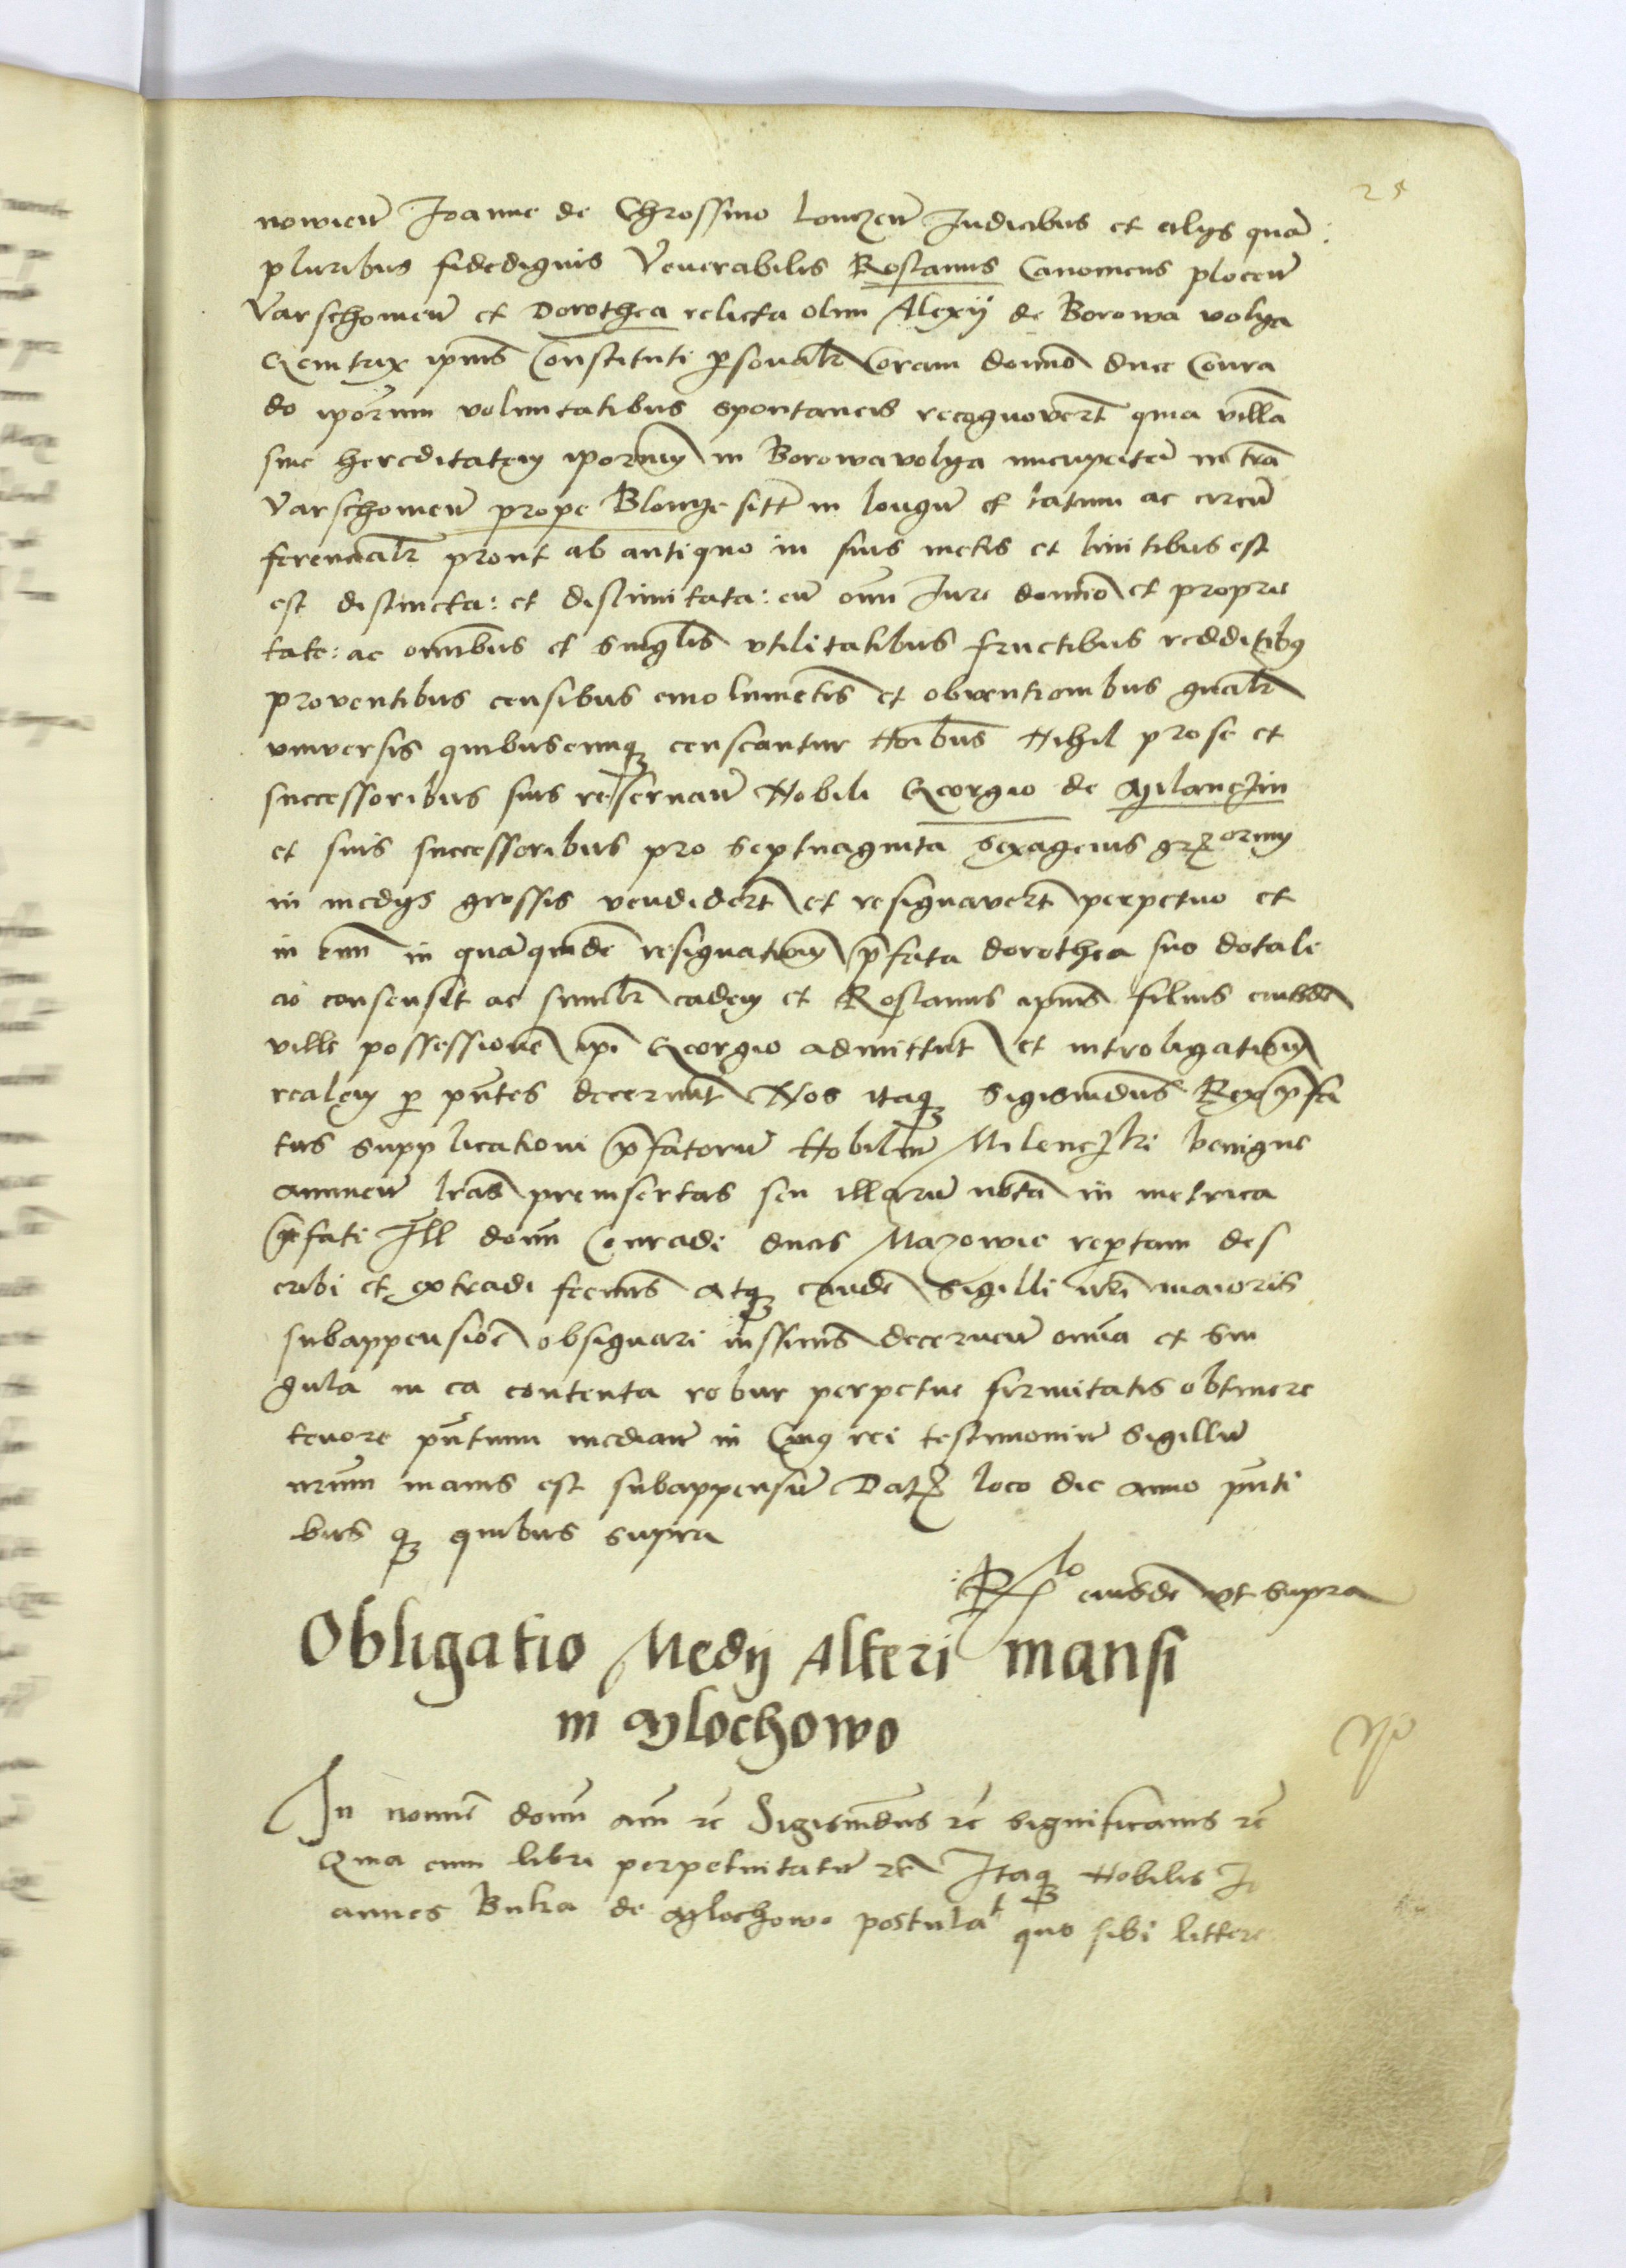 25
nowien̄ Joanne de Chrossmo lomzen̄ Judicibus et alijs quā
pluribus fidedignis Venerabilis Rostanus Canonicus plocen̄
Varschowien̄ et Dorothea relicta olim Alexij de Borowa volya
Genitrix ip̄ius Constituti p̱sonalr̄ Coram domino duce Conra
do ip̄orum voluntatibus spontaneis recognovert̄ quia villā
siue hereditatem ip̄orum in Borowavolya nuncupatā in trā
Varschowien̄ prope Blonye sitā in longū et latum ac circū
ferencialr̄ prout ab antiquo in suis metis et limitibus est
est distincta: et dislimitata: cū om̄i Jure dominio et proprie
tate: ac omnibus et singulis vtilitatibus fructibus redditibus
proventibus censibus emolumentis et obventionibus gn̄alr̄
vniversis quibuscunqȝ censeantur Noībus Nihil pro se et
successoribus suis reservan̄ Nobili Georgio de Milanczin
et suis successoribus pro septuaginta sexagenis grorum
in medijs grossis vendidert̄ et resignavert̄ perpetuo et
in evū in quā quidē resignationem p̄fata dorothea suo dotale
cio consensit ac simulr̄ eadem et Rostanus ip̄ius filius eiusdē
ville possessionē ip̄i Georgio admittunt et introligationem
realem per pn̄tes decernunt Nos itaqȝ Sigismūdus Rex p̄fa
tus supplicationi p̄fatorū Nobiliū Milenczki benigne
annuen̄ lrās preinsertas seu illarū notā in metrica
p̄fati Ill domī Conradi ducis Mazowie repertam des
cribi et extradi fecimus atqȝ eandē sigilli nr̄i maioris
subappensiōe obsignari iussimus decernen̄ omīa et sin
gula in ea contenta robur perpetue firmitatis obtinere
tenore pn̄tium median̄ in Cuius rei testimoniū Sigillū
nr̄um maius est subappensū Dat loco die anno pn̄ti
bus qȝ quibus supra
Rlo eiusdē vt supra
Obligatio Medij Alteri mansi
in Mlochowo
In nomīe domī amē rc̄ Sigismūdus rc̄ significamus rc̄
Quia cum libri perpetuitatū rc̄ Itaqȝ Nobilis Jo
annes Buka de Mlochowo postulat quo sibi littere